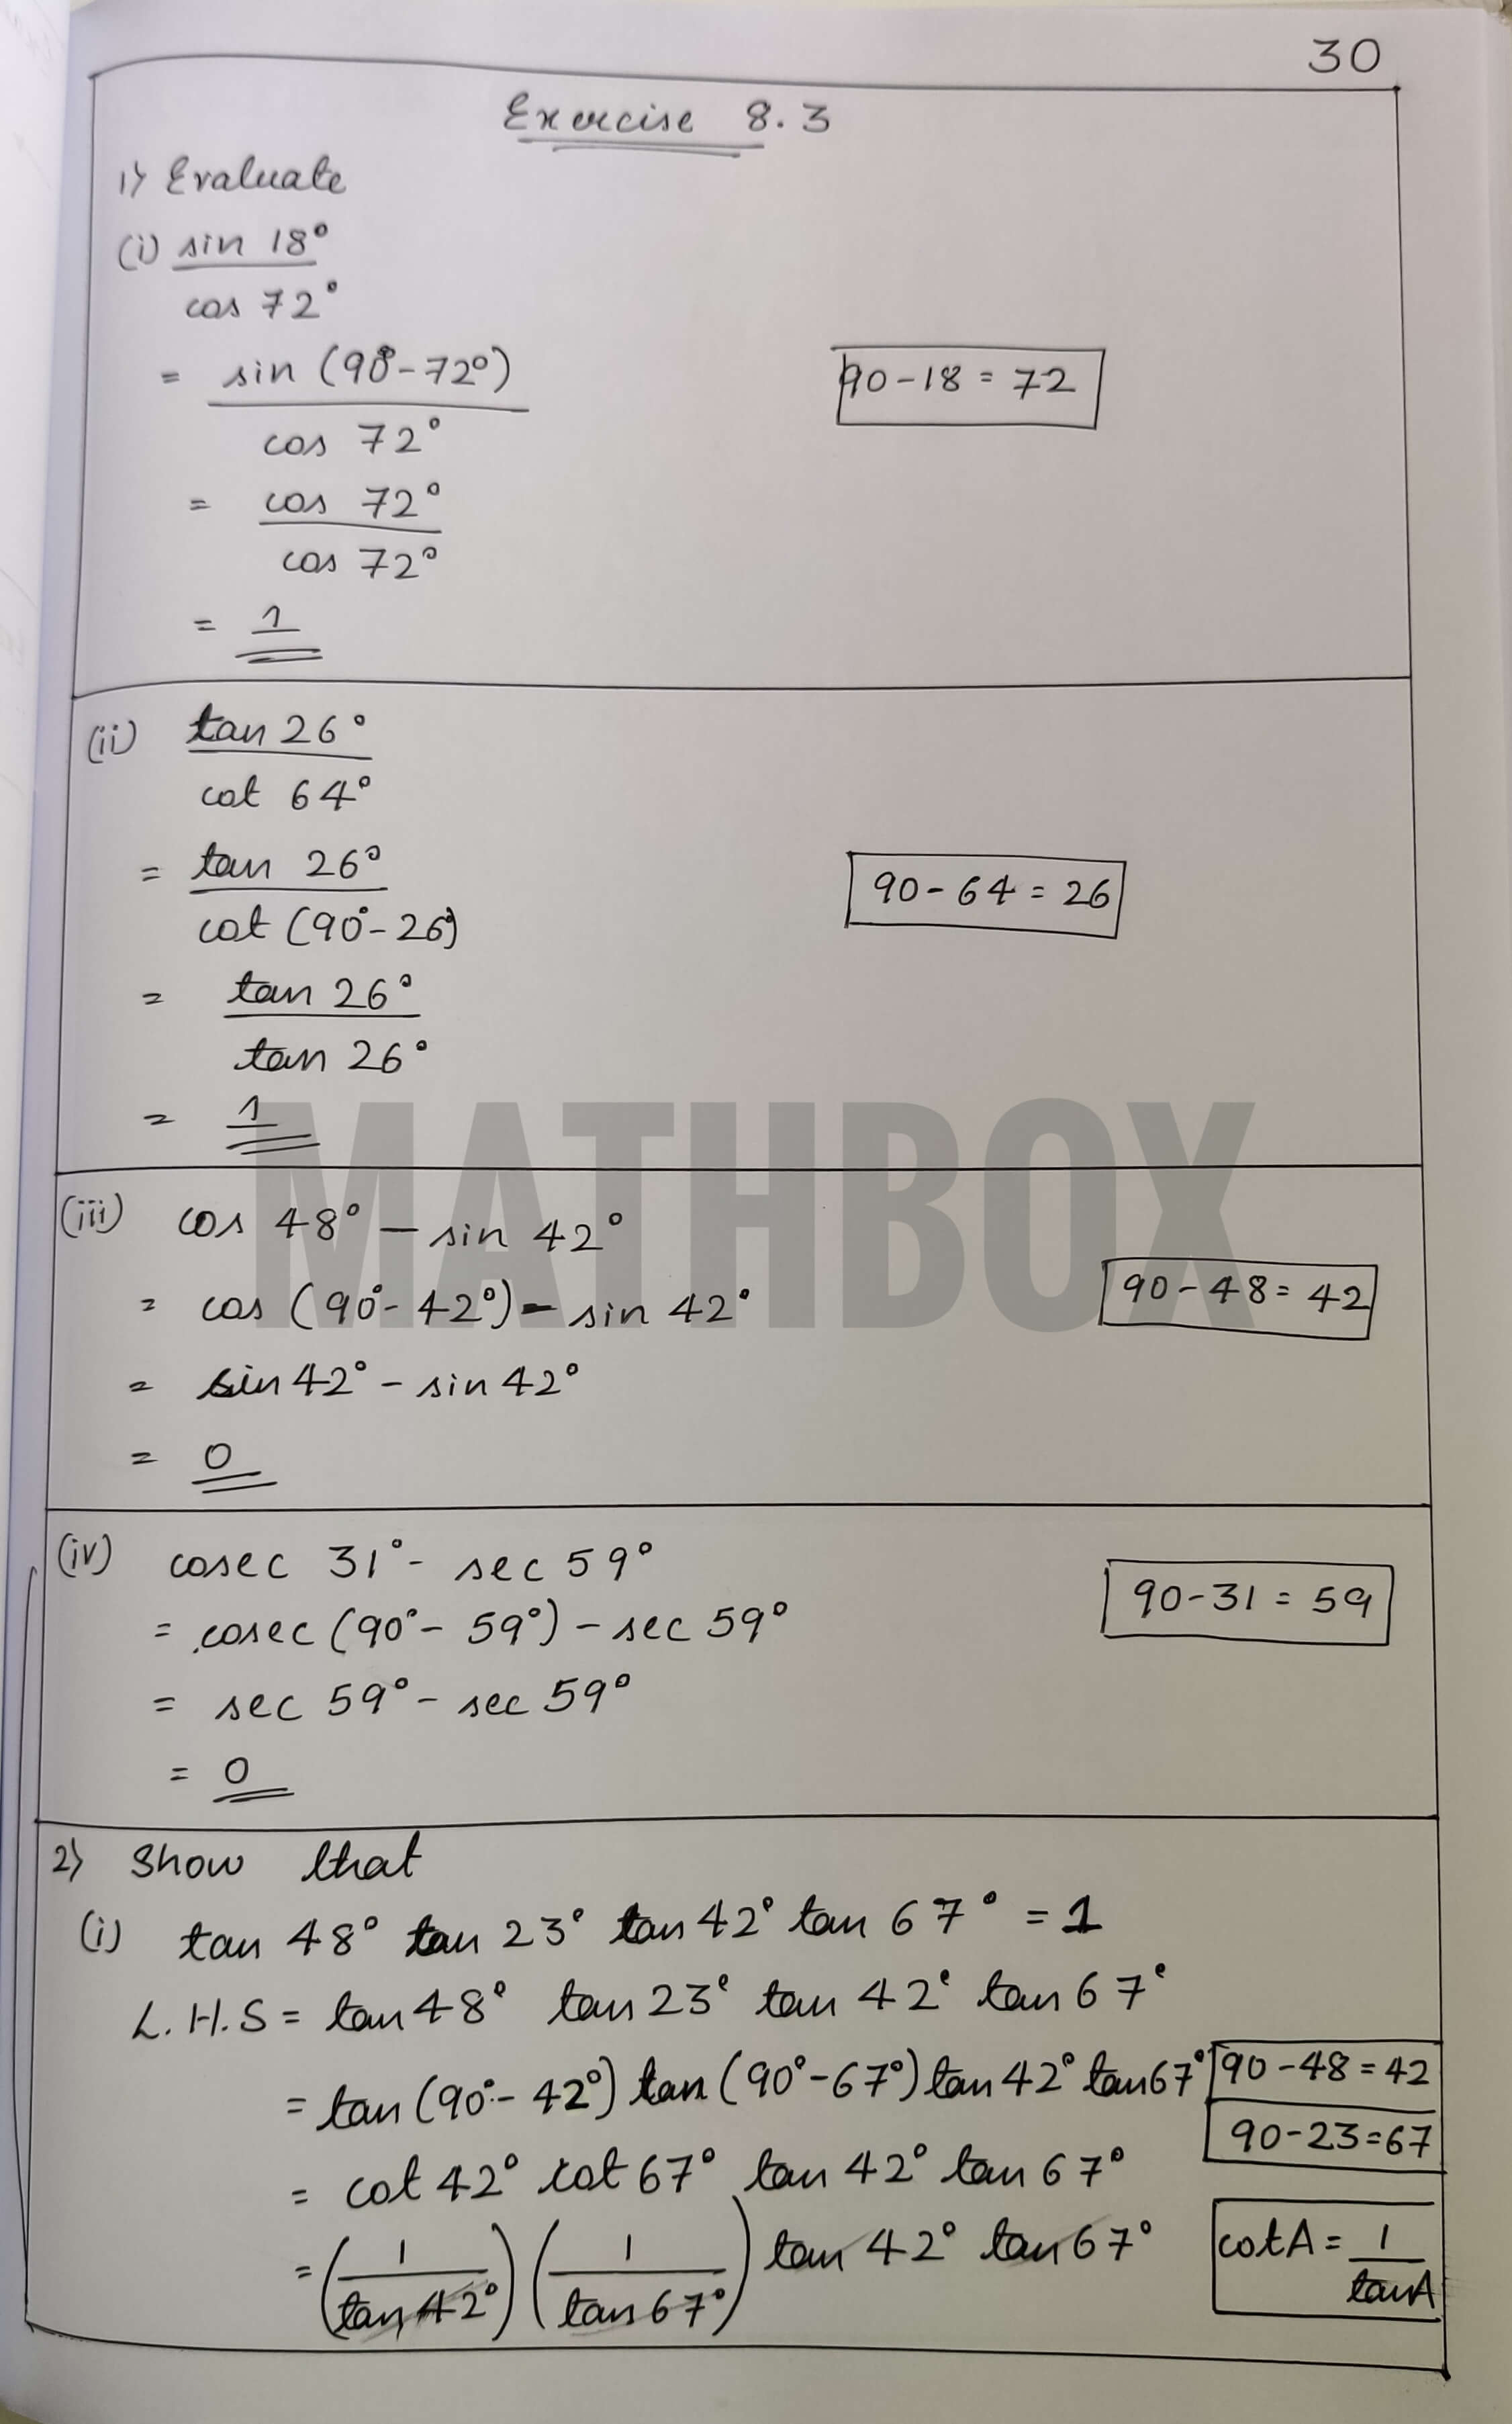 30
Exercise 8.3
1) Evaluate
(i) sin 18°
cos 72°
= sin (90°-72°)
cos 72°
90-18 = 72
= cos 72°
cos 72°
= 1
(ii) tan 26°
cot 64°
= tan 26°
cot (90°-26°)
90-64 = 26
= tan 26°
tan 26°
= 1
MATHBOX
(iii) cos 48° - sin 42°
= cos (90°-42°) - sin 42°
90-48 = 42
= sin 42° - sin 42°
= 0
(iv) cosec 31° - sec 59°
= cosec (90°-59°) - sec 59°
90-31 = 59
= sec 59° - sec 59°
= 0
2) Show that
(i) tan 48° tan 23° tan 42° tan 67° = 1
L.H.S = tan 48° tan 23° tan 42° tan 67°
= tan (90°-42°) tan (90°-67°) tan 42° tan 67°
90-48 = 42
90-23 = 67
= cot 42° cot 67° tan 42° tan 67°
= (1/tan 42°) (1/tan 67°) tan 42° tan 67°
cot A = 1/tan A